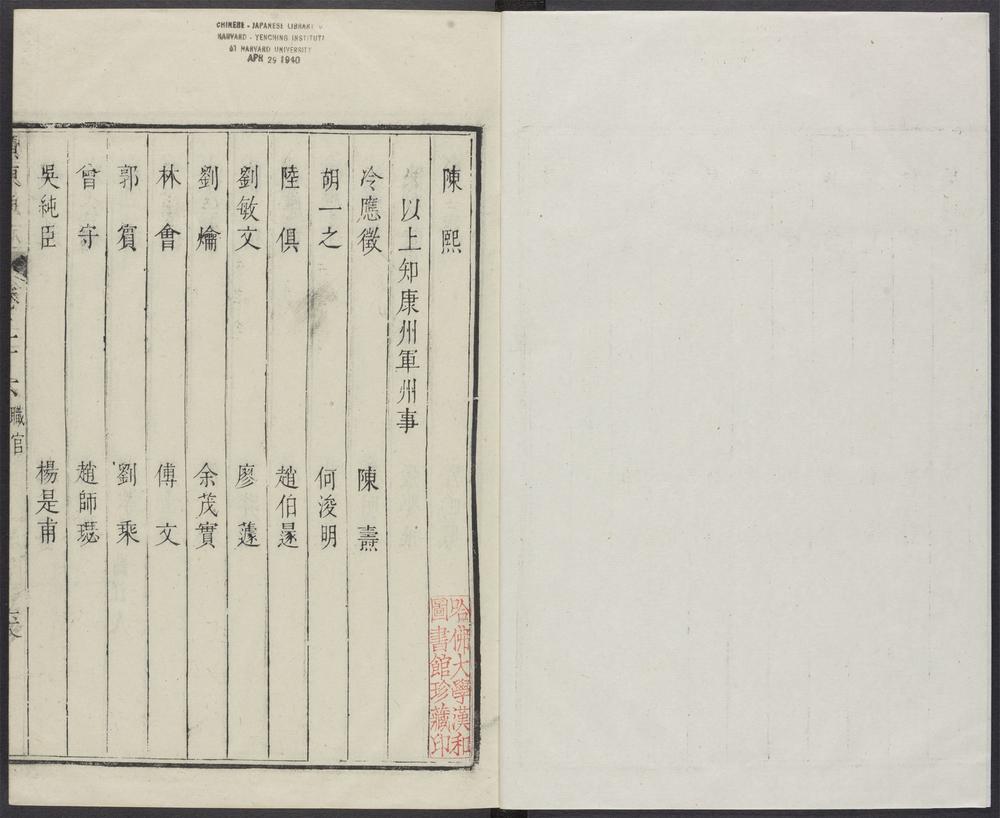 CHINESE - JAPANESE LIBRARY
HARVARD - YENCHING INSTITUTE
AT HARVARD UNIVERSITY
APR 29 1940
陳熙
以上知康州軍州事
冷應徵 陳燾
胡一之 何浚明
陸俱 趙伯
劉敏文 廖蘧
劉爚 余茂實
林會 傅文
郭賓 劉乘
曾守 趙師
吳純臣 楊是甫
職官
哈佛大學漢和
圖書館珍藏印